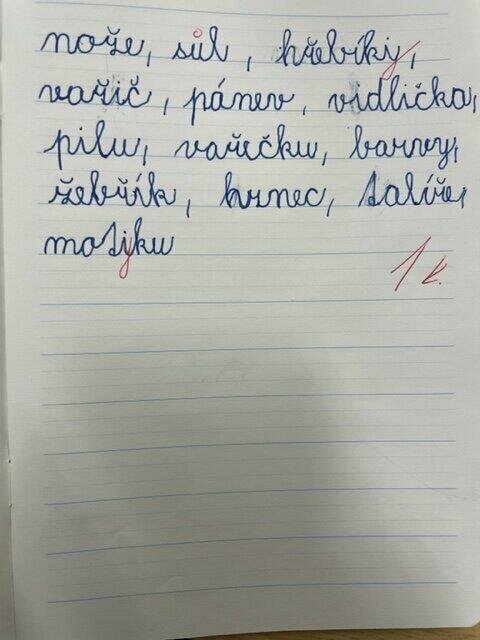 nože, sůl, hřebíky,
vařič, pánev, vidlička,
pilu, vařečku, barvy,
žebřík, hrnec, talíře,
motyku
1 k.